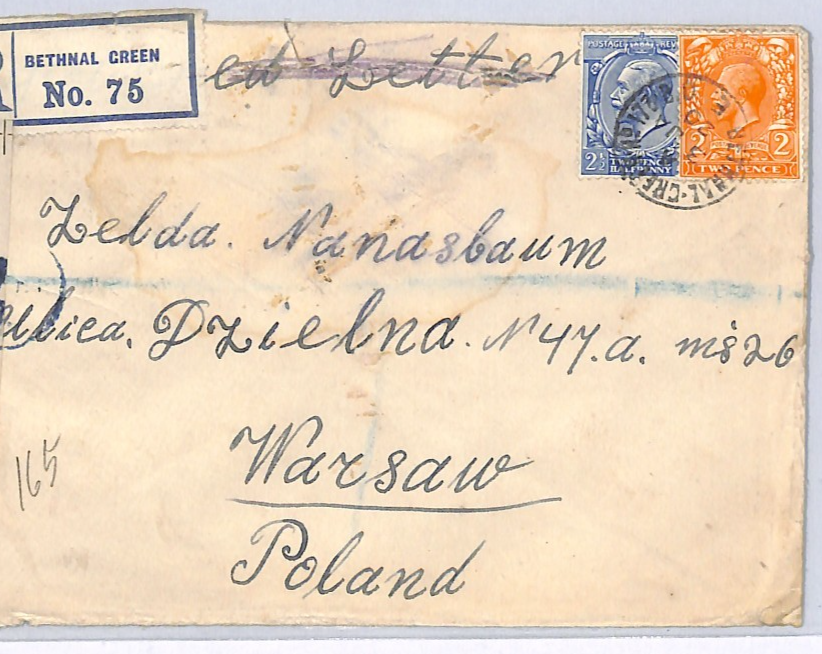 R
BETHNAL GREEN
No. 75
ed Letter
POSTAGE REVENUE
2½ TWOPENCE HALFPENNY
2 2
TWO PENCE
Zelda. Nanasbaum
Ulica. Dzielna. N 47.a. mš 26
165
Warsaw
Poland